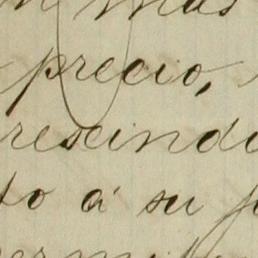 más
precio,
rescindi
to á su